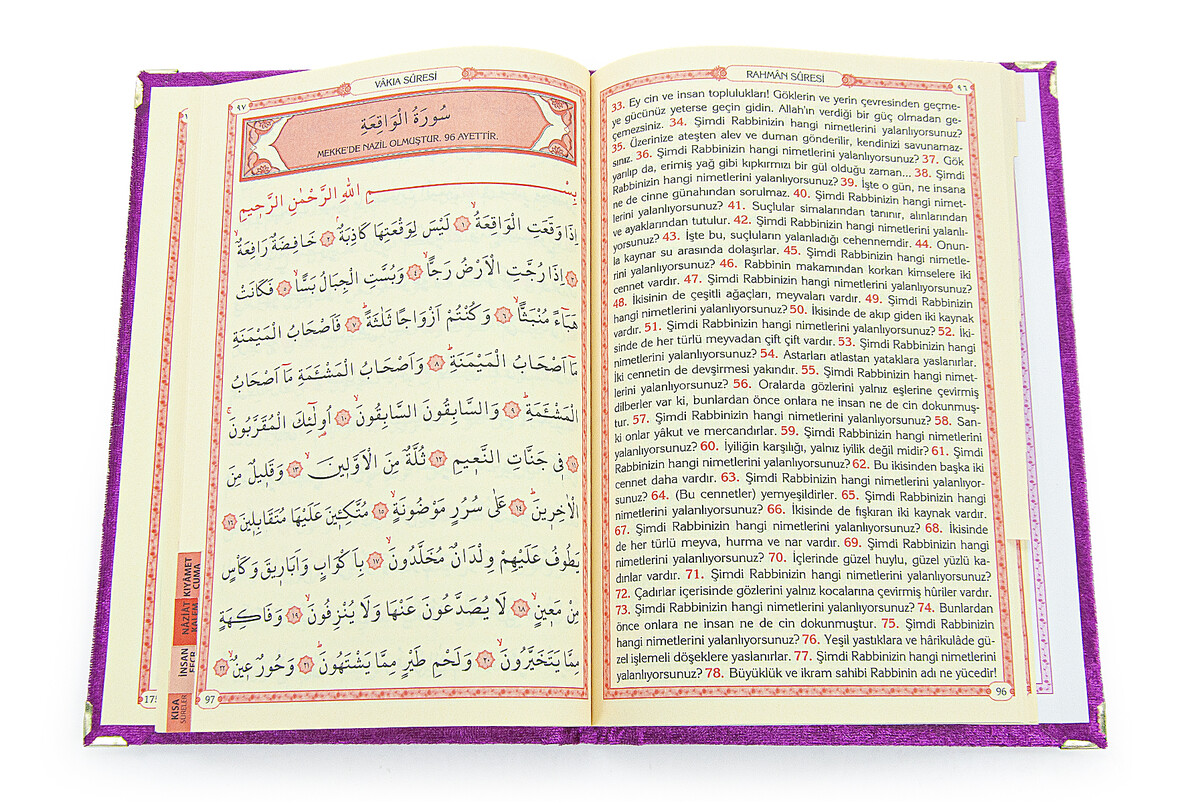 RAHMÂN SÛRESİ
٩٦
33. Ey cin ve insan toplulukları! Göklerin ve yerin çevresinden geçme-
ye gücünüz yeterse geçin gidin. Allah'ın verdiği bir güç olmadan ge-
çemezsiniz. 34. Şimdi Rabbinizin hangi nimetlerini yalanlıyorsunuz?
35. Üzerinize ateşten alev ve duman gönderilir, kendinizi savunamaz-
sınız. 36. Şimdi Rabbinizin hangi nimetlerini yalanlıyorsunuz? 37. Gök
yarılıp da, erimiş yağ gibi kıpkırmızı bir gül olduğu zaman... 38. Şimdi
Rabbinizin hangi nimetlerini yalanlıyorsunuz? 39. İşte o gün, ne insana
ne de cinne günahından sorulmaz. 40. Şimdi Rabbinizin hangi nimet-
lerini yalanlıyorsunuz? 41. Suçlular simalarından tanınır, alınlarından
ve ayaklarından tutulur. 42. Şimdi Rabbinizin hangi nimetlerini yalanlı-
yorsunuz? 43. İşte bu, suçluların yalanladığı cehennemdir. 44. Onun-
la kaynar su arasında dolaşırlar. 45. Şimdi Rabbinizin hangi nimetle-
rini yalanlıyorsunuz? 46. Rabbinin makamından korkan kimselere iki
cennet vardır. 47. Şimdi Rabbinizin hangi nimetlerini yalanlıyorsunuz?
48. İkisinin de çeşitli ağaçları, meyvaları vardır. 49. Şimdi Rabbinizin
hangi nimetlerini yalanlıyorsunuz? 50. İkisinde de akıp giden iki kaynak
vardır. 51. Şimdi Rabbinizin hangi nimetlerini yalanlıyorsunuz? 52. İki-
sinde de her türlü meyvadan çift çift vardır. 53. Şimdi Rabbinizin hangi
nimetlerini yalanlıyorsunuz? 54. Astarları atlastan yataklara yaslanırlar.
İki cennetin de devşirmesi yakındır. 55. Şimdi Rabbinizin hangi nimet-
lerini yalanlıyorsunuz? 56. Oralarda gözlerini yalnız eşlerine çevirmiş
dilberler var ki, bunlardan önce onlara ne insan ne de cin dokunmuş-
tur. 57. Şimdi Rabbinizin hangi nimetlerini yalanlıyorsunuz? 58. San-
ki onlar yâkut ve mercandırlar. 59. Şimdi Rabbinizin hangi nimetlerini
yalanlıyorsunuz? 60. İyiliğin karşılığı, yalnız iyilik değil midir? 61. Şimdi
Rabbinizin hangi nimetlerini yalanlıyorsunuz? 62. Bu ikisinden başka iki
cennet daha vardır. 63. Şimdi Rabbinizin hangi nimetlerini yalanlıyor-
sunuz? 64. (Bu cennetler) yemyeşildirler. 65. Şimdi Rabbinizin hangi
nimetlerini yalanlıyorsunuz? 66. İkisinde de fışkıran iki kaynak vardır.
67. Şimdi Rabbinizin hangi nimetlerini yalanlıyorsunuz? 68. İkisinde
de her türlü meyva, hurma ve nar vardır. 69. Şimdi Rabbinizin hangi
nimetlerini yalanlıyorsunuz? 70. İçlerinde güzel huylu, güzel yüzlü ka-
dınlar vardır. 71. Şimdi Rabbinizin hangi nimetlerini yalanlıyorsunuz?
72. Çadırlar içerisinde gözlerini yalnız kocalarına çevirmiş hûriler vardır.
73. Şimdi Rabbinizin hangi nimetlerini yalanlıyorsunuz? 74. Bunlardan
önce onlara ne insan ne de cin dokunmuştur. 75. Şimdi Rabbinizin
hangi nimetlerini yalanlıyorsunuz? 76. Yeşil yastıklara ve hârikulâde gü-
zel işlemeli döşeklere yaslanırlar. 77. Şimdi Rabbinizin hangi nimetlerini
yalanlıyorsunuz? 78. Büyüklük ve ikram sahibi Rabbinin adı ne yücedir!
96
VÂKIA SÛRESİ
٩٧
سُورَةُ الْوَاقِعَةِ
MEKKE'DE NAZİL OLMUŞTUR. 96 AYETTİR.
بِسْمِ اللهِ الرَّحْمٰنِ الرَّحٖيمِ
اِذَا وَقَعَتِ الْوَاقِعَةُۙ ١ لَيْسَ لِوَقْعَتِهَا كَاذِبَةٌۢ ٢ خَافِضَةٌ رَافِعَةٌۙ
٣ اِذَا رُجَّتِ الْاَرْضُ رَجًّاۙ ٤ وَبُسَّتِ الْجِبَالُ بَسًّاۙ ٥ فَكَانَتْ
هَبَٓاءً مُنْبَثًّاۙ ٦ وَكُنْتُمْ اَزْوَاجًا ثَلٰثَةًۜ ٧ فَاَصْحَابُ الْمَيْمَنَةِ
مَٓا اَصْحَابُ الْمَيْمَنَةِۜ ٨ وَاَصْحَابُ الْمَشْـَٔمَةِ مَٓا اَصْحَابُ
الْمَشْـَٔمَةِۜ ٩ وَالسَّابِقُونَ السَّابِقُونَۙ ١٠ اُو۬لٰٓئِكَ الْمُقَرَّبُونَۚ
١١ فٖي جَنَّاتِ النَّعٖيمِ ١٢ ثُلَّةٌ مِنَ الْاَوَّلٖينَۙ ١٣ وَقَلٖيلٌ مِنَ
الْاٰخِرٖينَۜ ١٤ عَلٰى سُرُرٍ مَوْضُونَةٍۙ ١٥ مُتَّكِـٖٔينَ عَلَيْهَا مُتَقَابِلٖينَ ١٦
يَطُوفُ عَلَيْهِمْ وِلْدَانٌ مُخَلَّدُونَۙ ١٧ بِاَكْوَابٍ وَاَبَارٖيقَ وَكَأْسٍ
مِنْ مَعٖينٍۙ ١٨ لَا يُصَدَّعُونَ عَنْهَا وَلَا يُنْزِفُونَۙ ١٩ وَفَاكِهَةٍ
مِمَّا يَتَخَيَّرُونَۙ ٢٠ وَلَحْمِ طَيْرٍ مِمَّا يَشْتَهُونَۜ ٢١ وَحُورٌ عٖينٌۙ ٢٢
97
KIYÂMET
CUMA
NÂZİÂT
KALEM
İNSAN
FECR
KISA
SÛRELER
175